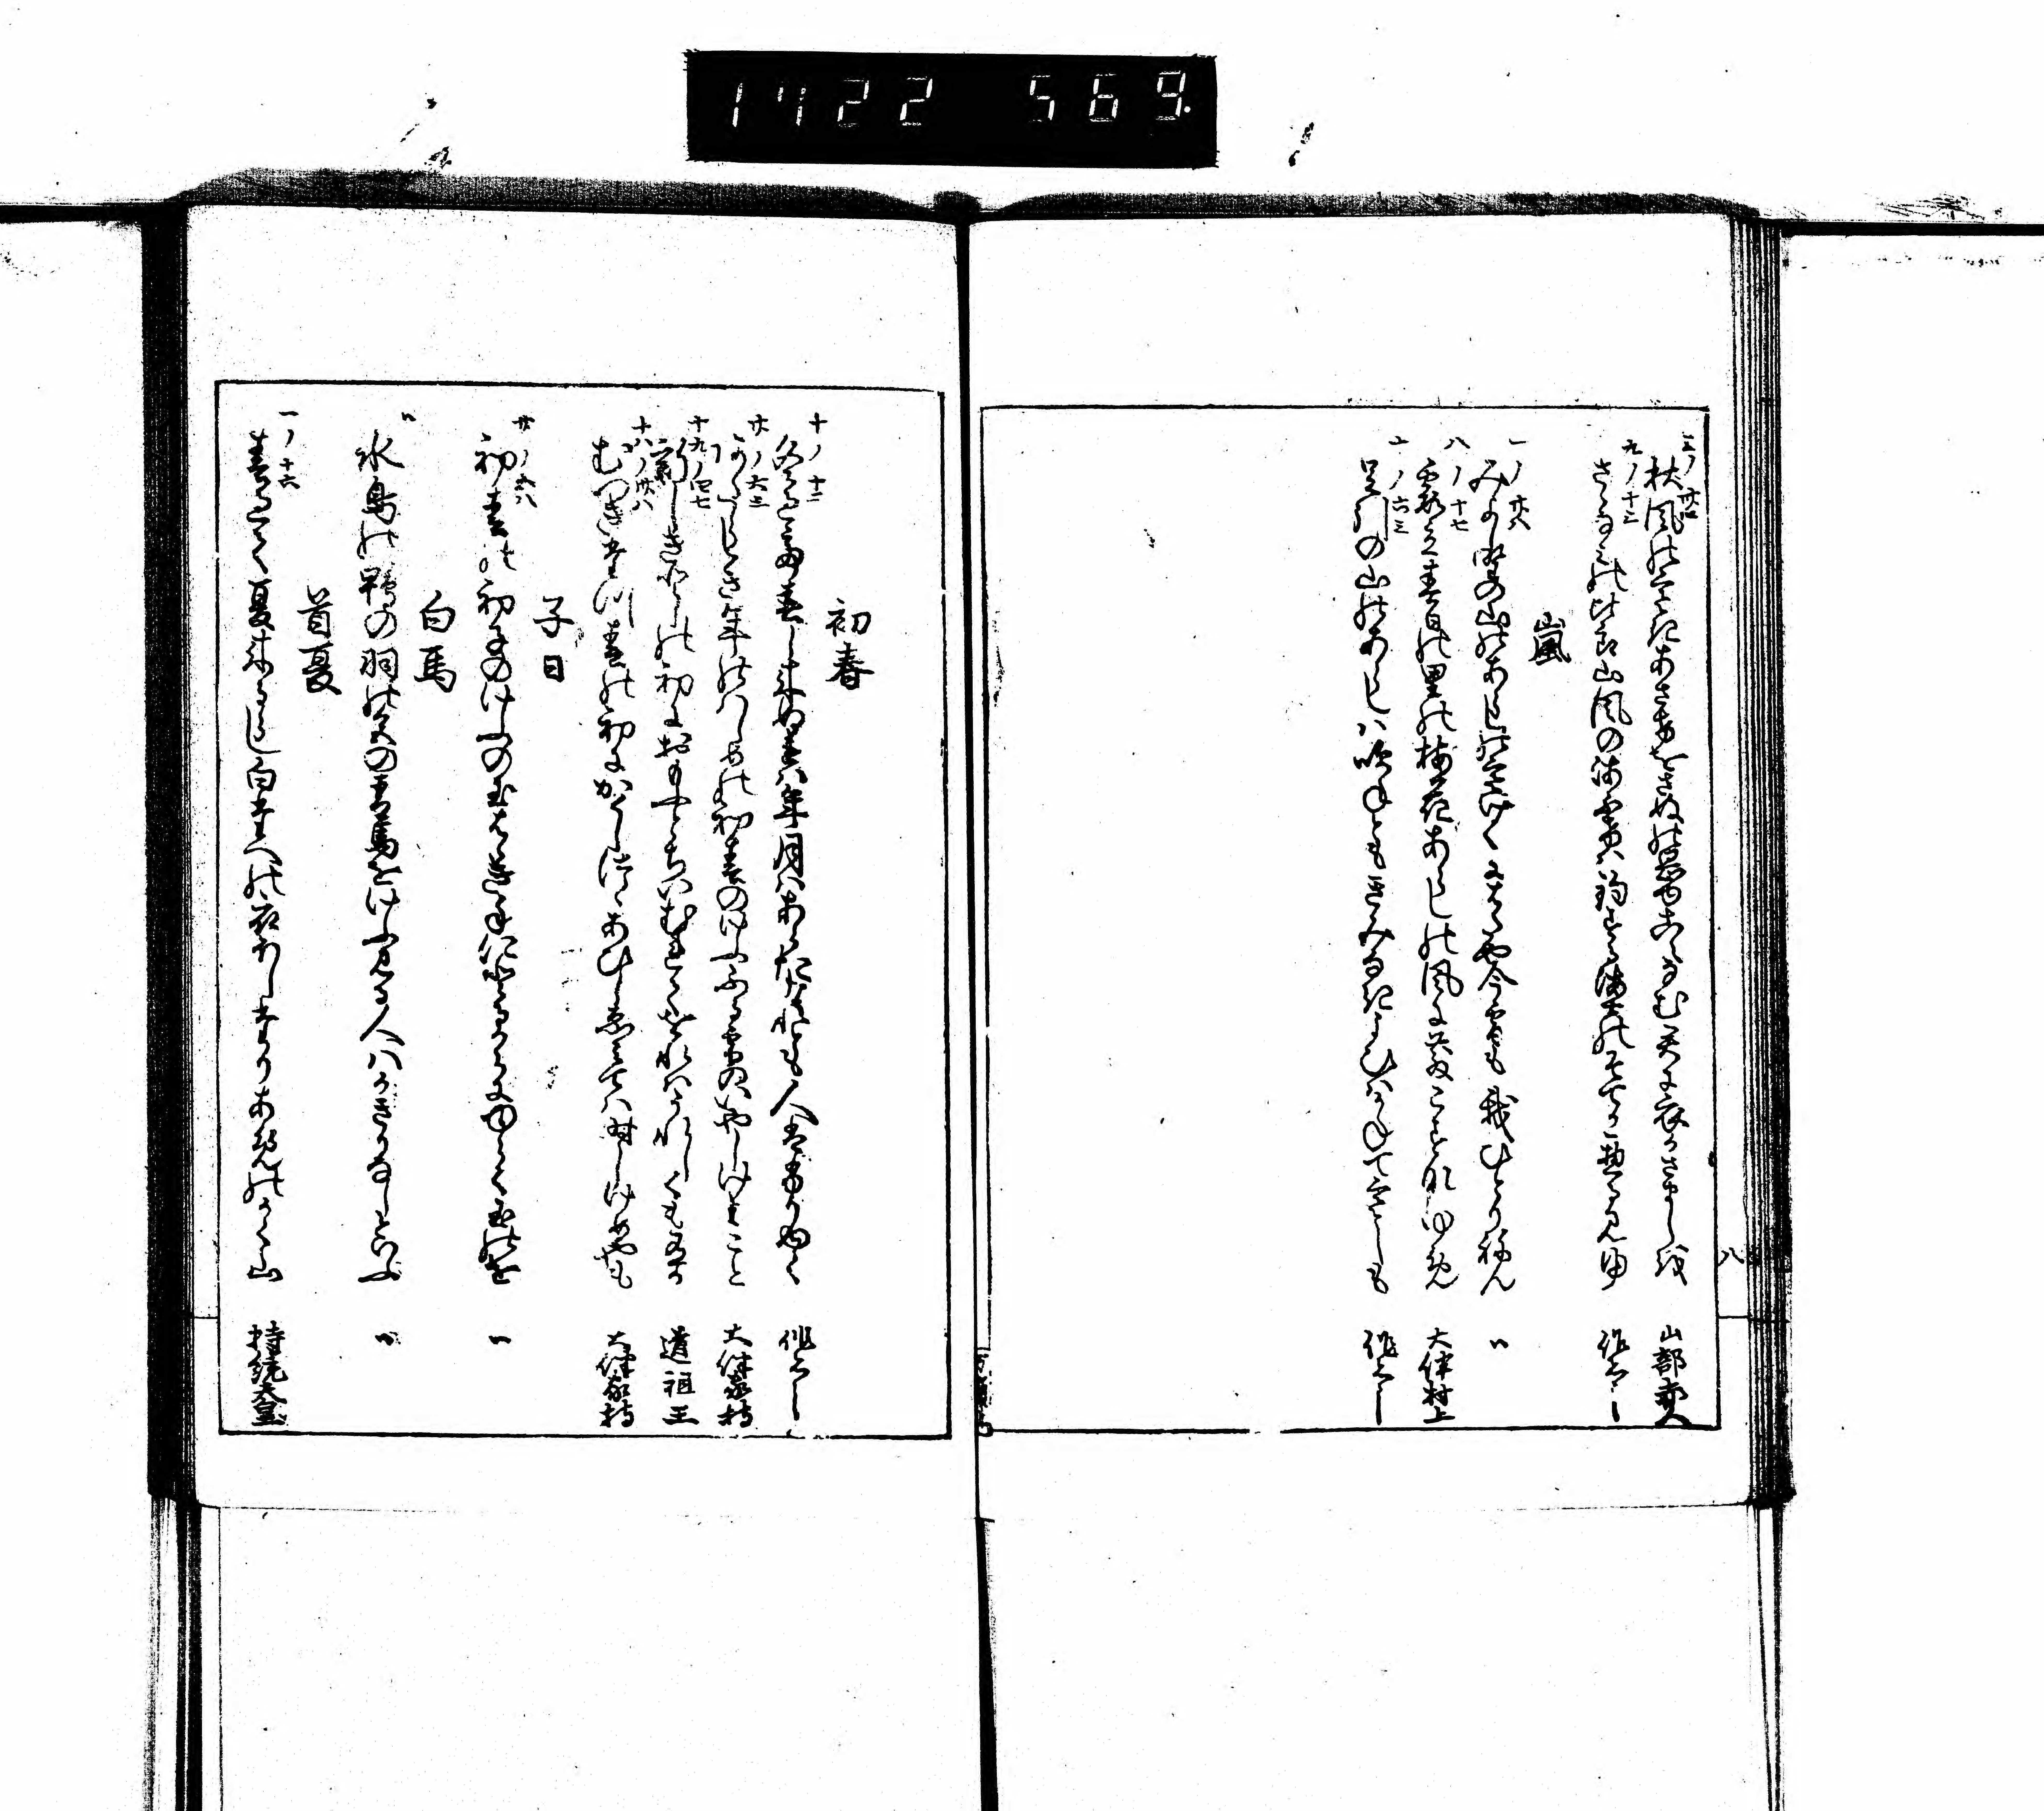 1422 569
三ノ廿四
秋風の寒きあさけをさぬの岡こゆらむ君に衣かさましを 山部赤人
九ノ十三
さゝ浪の比良山風の海吹は釣する海士の袖かへるみゆ 作者なし
嵐
一ノ廿八
みよし野の山のあらしの寒けくにはたや今宵も我ひとりねん 〃
八ノ十七
霞立春日の里の梅花あらしの風に散こすなゆめ 大伴村上
十ノ六三
足引の山のあらしは吹ねとも君なき宵はかねて寒しも 作者なし
八
初春
十ノ十二
冬過て春し来ぬれは年月はあらたなれとも人はふりゆく 作者なし
廿ノ六三
あたらしき年のはしめの初春のけふふる雪のいやしけよこと 大伴家持
十九ノ四七
新しき年の初におもふとちいむれてをれはうれしくもあるか 道祖王
十八ノ廿八
むつきたつ春の初にかくしつゝあひしゑみては時しけめやも 大伴家持
子日
廿ノ五八
初春の初子のけふの玉はゝき手に取るからにゆらく玉の緒 〃
白馬
〃
水鳥の鴨の羽の色の青馬をけふ見る人はかきりなしといふ 〃
首夏
一ノ十六
春過て夏来るらし白たへの衣ほしたりあめのかく山 持統天皇